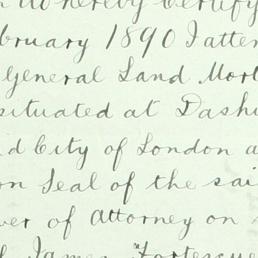 do hereby Certify
bruary 1890 I atten
General Land Mort
situated at Dashw
d City of London a
on Seal of the sai
wer of Attorney on
James Fortescue